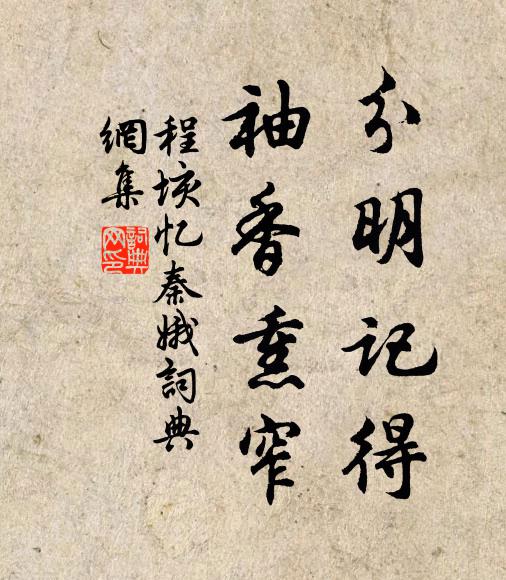 分明记得
袖香熏窄
程垓忆秦娥詞典
網集
詞典
网印